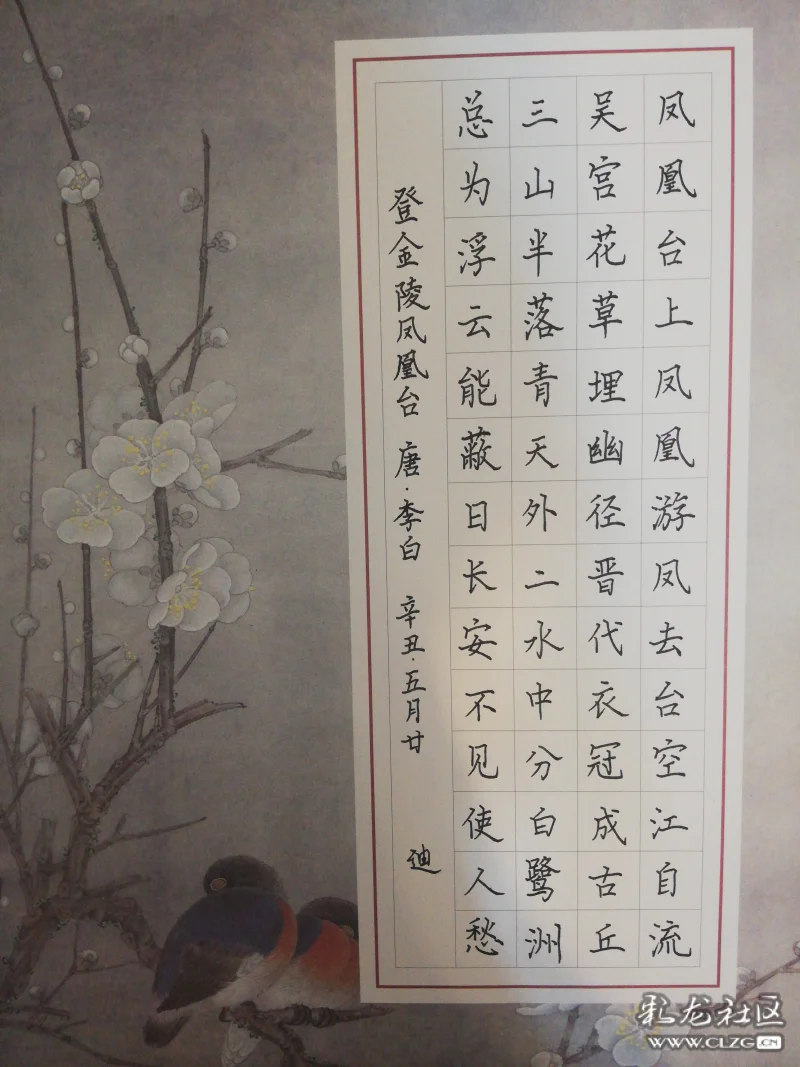 凤凰台上凤凰游凤去台空江自流
吴宫花草埋幽径晋代衣冠成古丘
三山半落青天外二水中分白鹭洲
总为浮云能蔽日长安不见使人愁
登金陵凤凰台 唐·李白 辛丑·五月廿 迪
彩龙社区
WWW.CLZG.CN